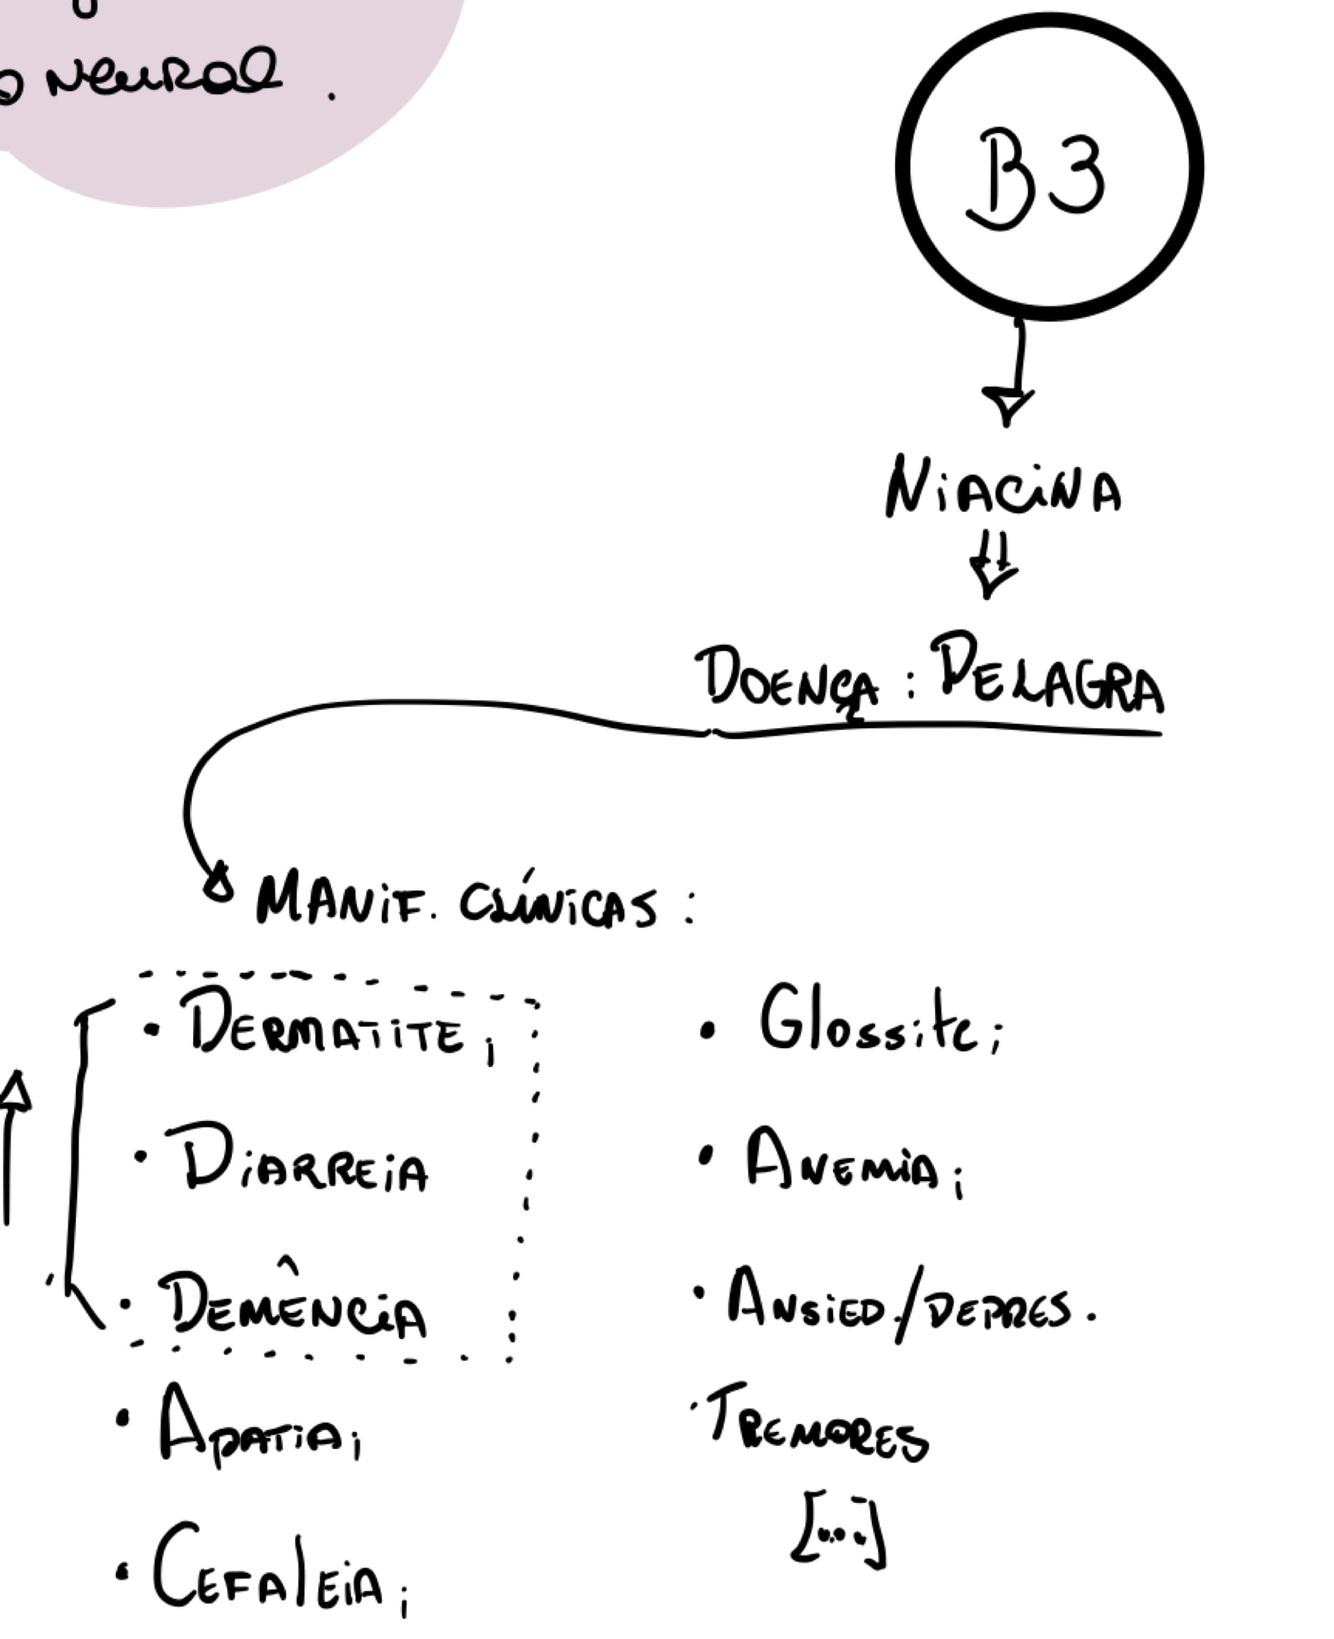 neural.
B3
Niacina
Doença: Pelagra
Manif. Clínicas:
• Dermatite;
• Diarreia
• Demência
• Apatia;
• Cefaleia;
• Glossite;
• Anemia;
• Ansied./depres.
• Tremores
[...]